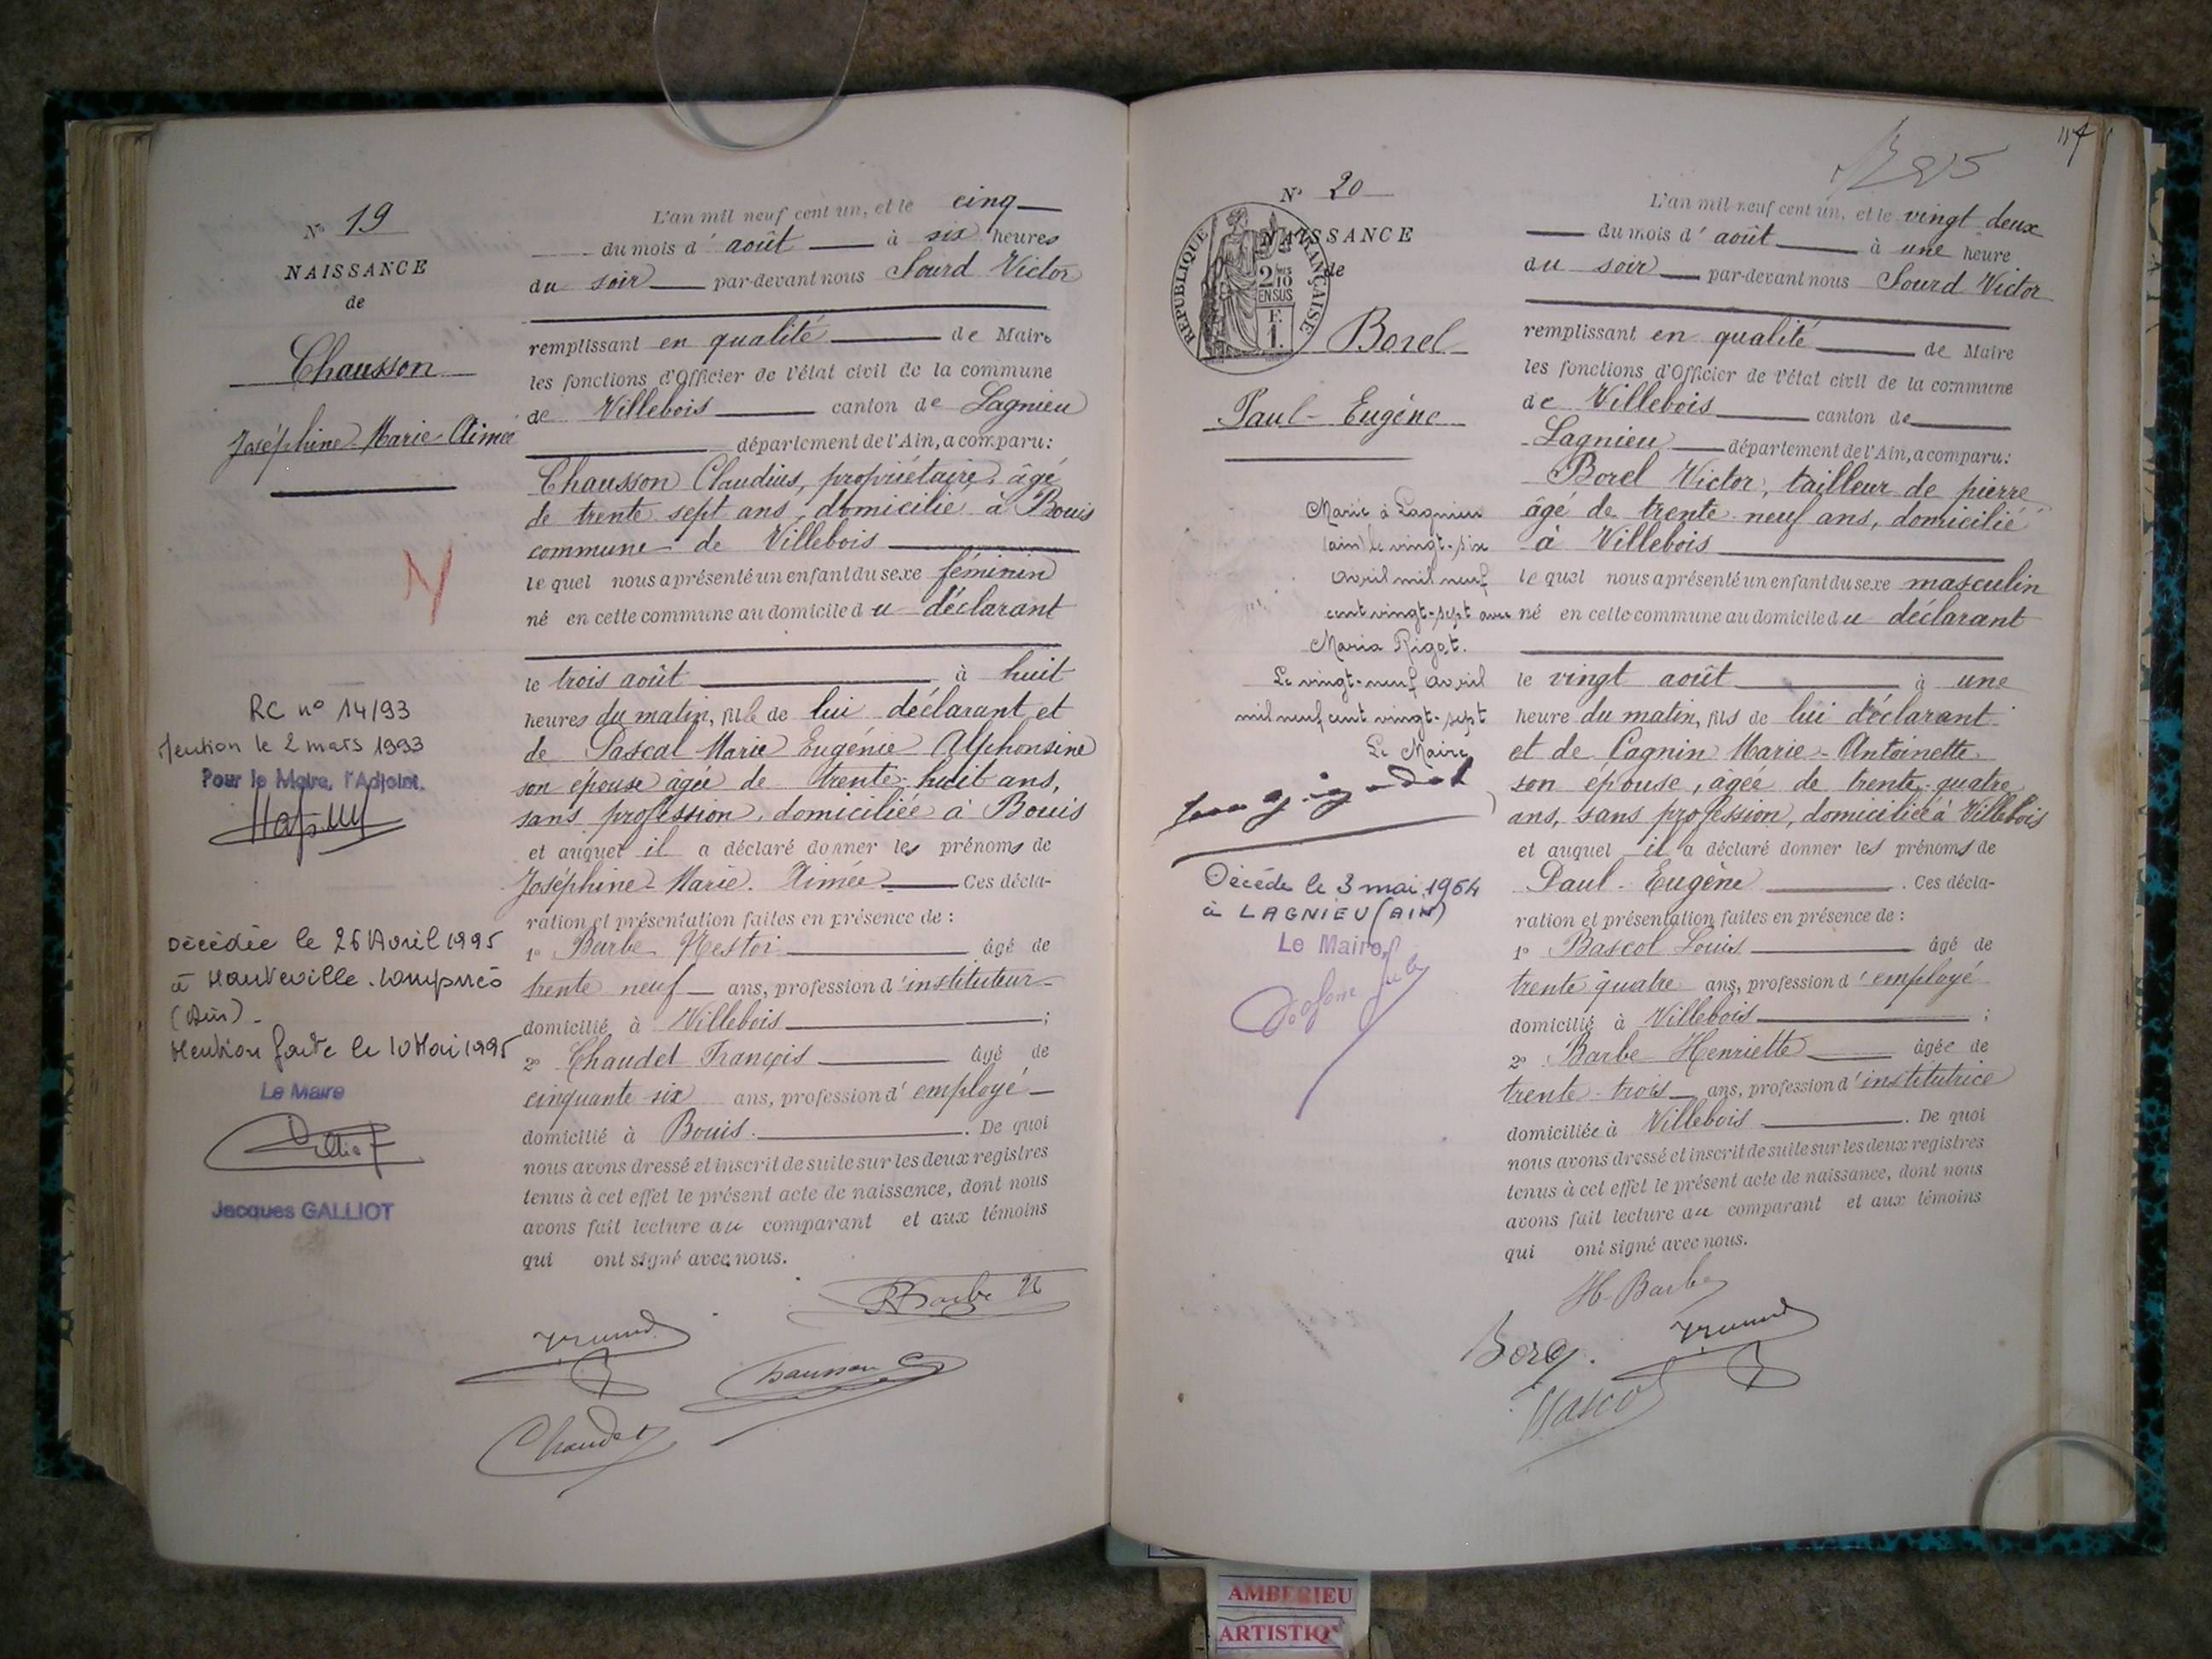 Nº 19
NAISSANCE
de
Chausson
Joséphine-Marie-Aimée
RC nº 14/93
Mention le 2 mars 1993
Pour le Maire, l'Adjoint.
Décédée le 26 Avril 1995
à Hauteville-Lompnès
(Ain)
Mention faite le 10 Mai 1995
Le Maire
Jacques GALLIOT
L'an mil neuf cent un, et le cinq
du mois d'août à six heures
du soir par-devant nous Sourd Victor
remplissant en qualité de Maire
les fonctions d'Officier de l'état civil de la commune
de Villebois canton de Lagnieu
département de l'Ain, a comparu:
Chausson Claudius, propriétaire, âgé
de trente sept ans, domicilié à Bouis
commune de Villebois
le quel nous a présenté un enfant du sexe féminin
né en cette commune au domicile du déclarant
le trois août à huit
heures du matin, fille de lui déclarant et
de Pascal Marie Eugénie Alphonsine
son épouse âgée de trente-huit ans,
sans profession, domiciliée à Bouis
et auquel il a déclaré donner les prénoms de
Joséphine-Marie-Aimée Ces décla-
ration et présentation faites en présence de :
1º Barbe Nestor âgé de
trente neuf ans, profession d'instituteur
domicilié à Villebois ;
2º Chaudet François âgé de
cinquante six ans, profession d'employé
domicilié à Bouis. De quoi
nous avons dressé et inscrit de suite sur les deux registres
tenus à cet effet le présent acte de naissance, dont nous
avons fait lecture au comparant et aux témoins
qui ont signé avec nous.
Barbe N
Chausson C
Chaudet
Nº 20
NAISSANCE
de
RÉPUBLIQUE FRANÇAISE
2/10
EN SUS
F.
1.
Borel
Paul-Eugène
Marié à Lagnieu
(ain) le vingt-six
avril mil neuf
cent vingt-sept avec
Maria Rigot.
Le vingt-neuf avril
mil neuf cent vingt-sept
Le Maire
Décédé le 3 mai 1964
à LAGNIEU (AIN)
Le Maire,
L'an mil neuf cent un, et le vingt deux
du mois d'août à une heure
du soir par-devant nous Sourd Victor
remplissant en qualité de Maire
les fonctions d'Officier de l'état civil de la commune
de Villebois canton de
Lagnieu département de l'Ain, a comparu:
Borel Victor, tailleur de pierre
âgé de trente-neuf ans, domicilié
à Villebois
le quel nous a présenté un enfant du sexe masculin
né en cette commune au domicile du déclarant
le vingt août à une
heure du matin, fils de lui déclarant
et de Cagnin Marie-Antoinette
son épouse, âgée de trente-quatre
ans, sans profession, domiciliée à Villebois
et auquel il a déclaré donner les prénoms de
Paul-Eugène. Ces décla-
ration et présentation faites en présence de :
1º Bascol Louis âgé de
trente quatre ans, profession d'employé
domicilié à Villebois ;
2º Barbe Henriette âgée de
trente-trois ans, profession d'institutrice
domiciliée à Villebois. De quoi
nous avons dressé et inscrit de suite sur les deux registres
tenus à cet effet le présent acte de naissance, dont nous
avons fait lecture au comparant et aux témoins
qui ont signé avec nous.
H Barbe
AMBERIEU
ARTISTIQ